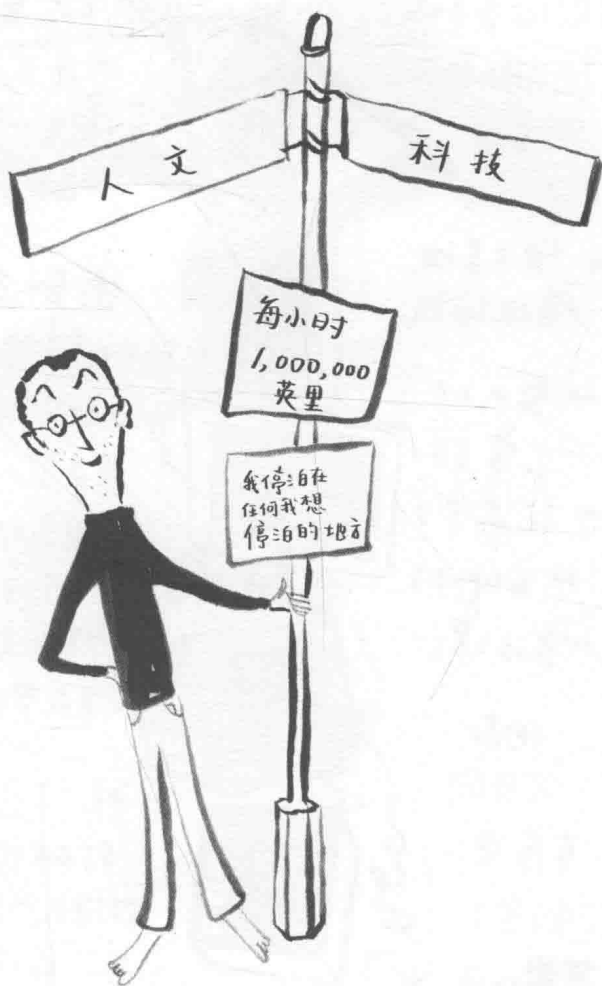 人文
科技
每小时
1,000,000
英里
我停泊在
任何我想
停泊的地方